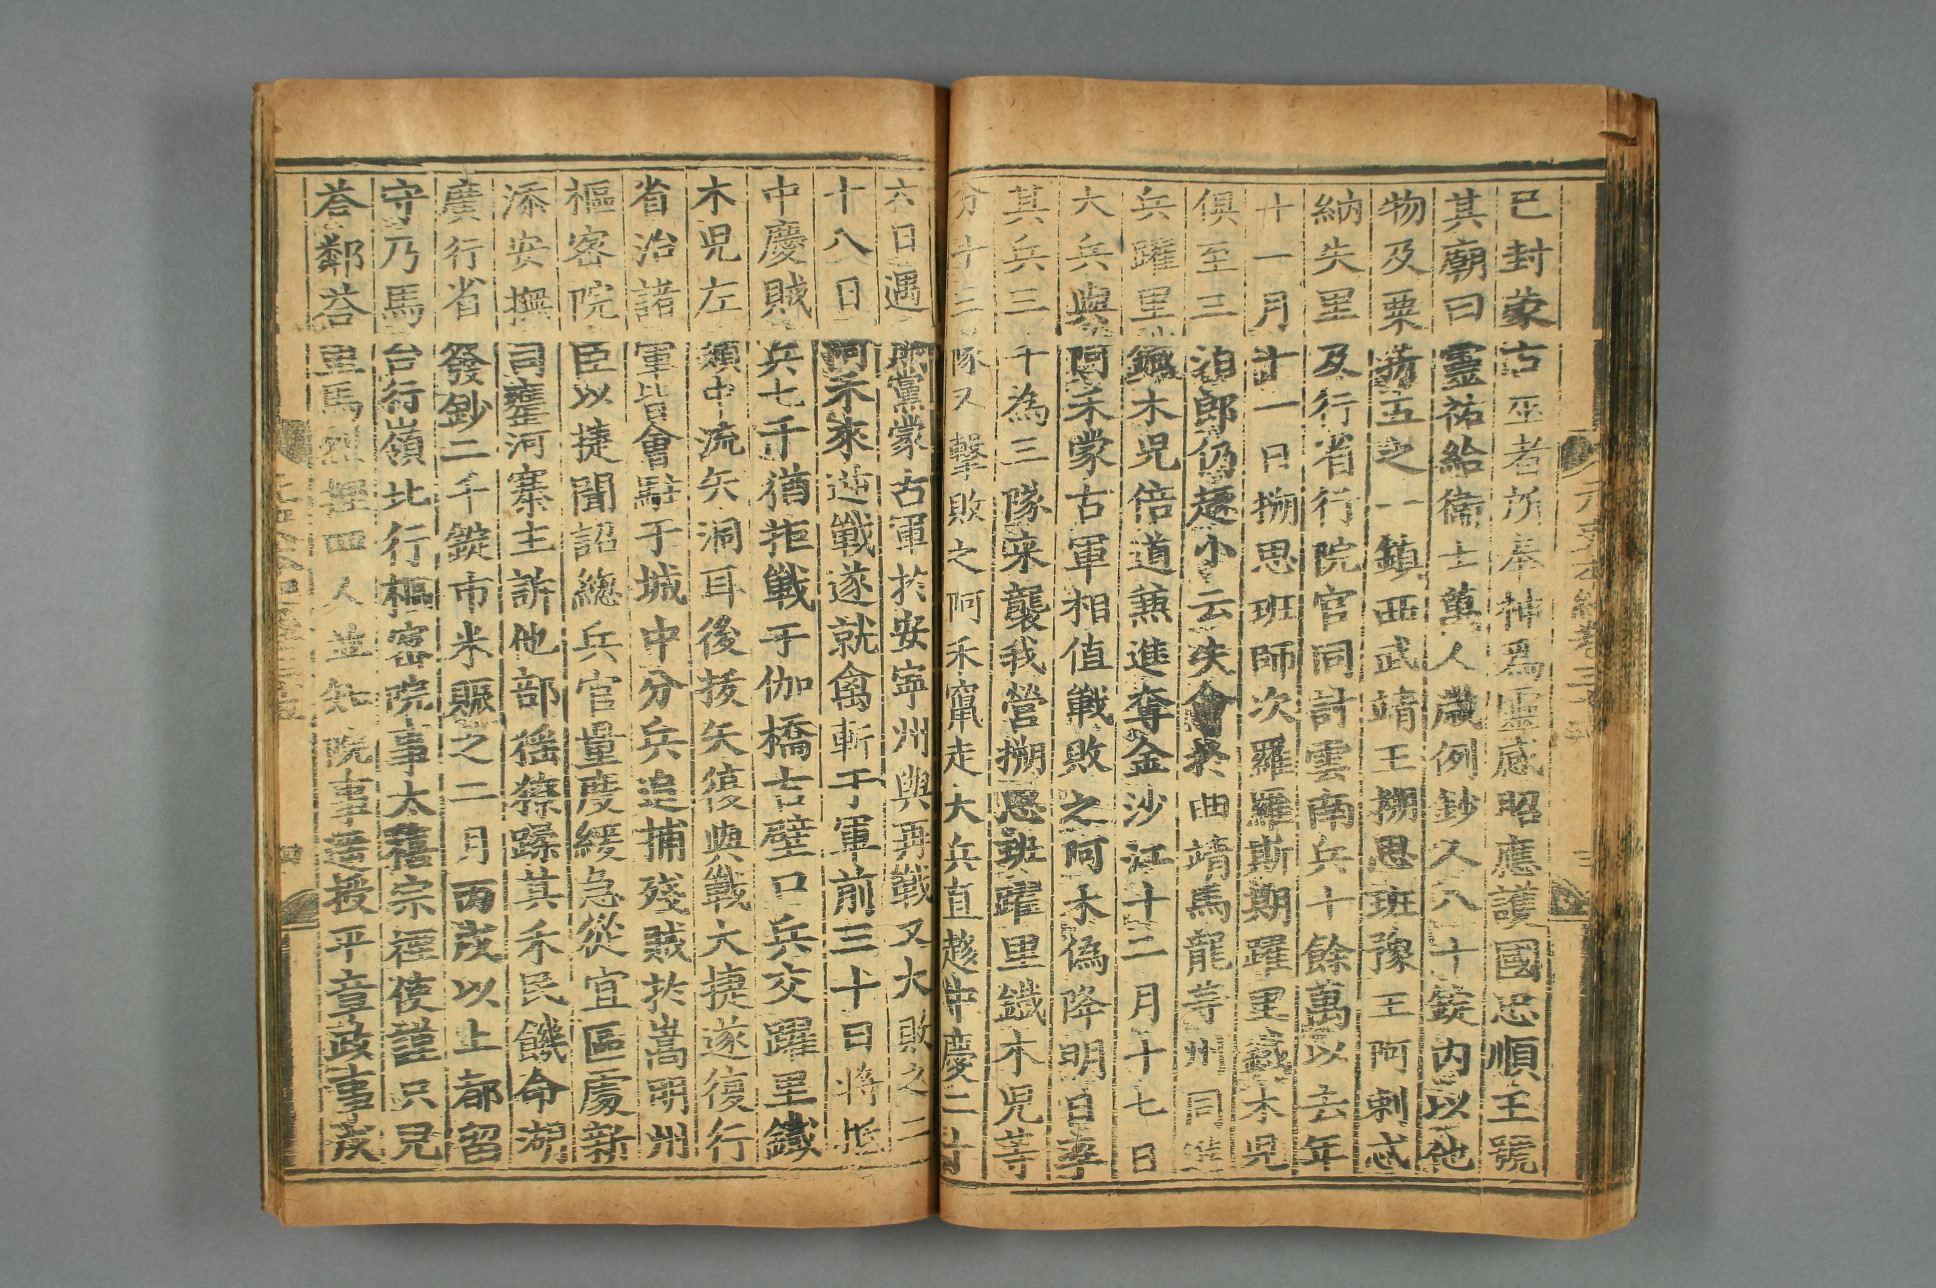 已封蒙古巫者所奉神爲靈感昭應護國忠順王號
其廟曰靈祐給衞士萬人歲例鈔人八十錠內以他
物及粟折五之一鎮西武靖王搠思班豫王阿剌忒
納失里及行省行院官同計雲南兵十餘萬以去年
十一月十一日搠思班師次羅羅斯期躍里鐵木兒
俱至三泊郎仍趣小云失會於曲靖馬龍等州同進
兵躍里鐵木兒倍道兼進奪金沙江十二月十七日
大兵與阿禾蒙古軍相值戰敗之阿禾僞降明日率
其兵三千為三隊來襲我營搠思班躍里鐵木兒等
分十三隊又擊敗之阿禾竄走大兵直趍中慶二十
六日遇賊黨蒙古軍於安寧州與再戰又大敗之二
十八日阿禾來逆戰遂就禽斬于軍前三十日將抵
中慶賊兵七千猶拒戰于伽橋古壁口兵交躍里鐵
木兒左頰中流矢洞耳後拔矢復與戰大捷遂復行
省治諸軍皆會駐于城中分兵追捕殘賊於嵩明州
樞密院臣以捷聞詔緫兵官量度緩急從宜區處新
添安撫司甕河寨主訴他部猺獠蹂其禾民饑命湖
廣行省發鈔二千錠市米賑之二月丙戌以上都留
守乃馬台行嶺北行樞密院事太禧宗禋使謹只兒
荅鄰荅里馬列捏四人並知院事遥授平章政事戊